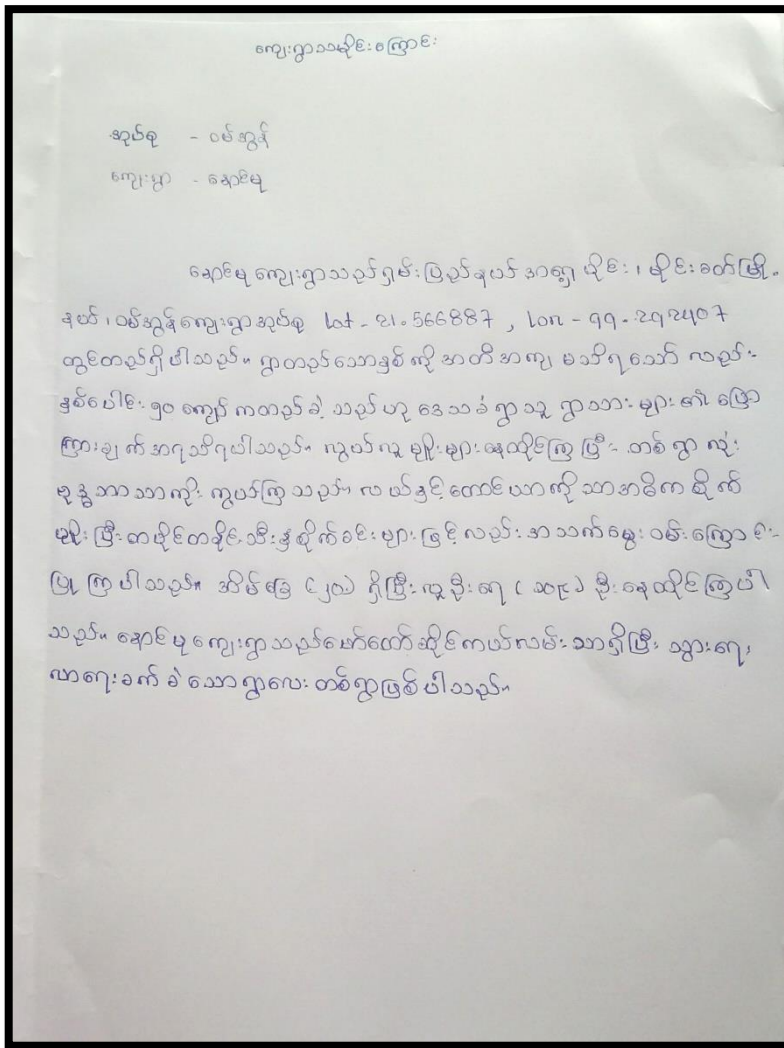 ကျေးရွာသမိုင်းကြောင်း
အုပ်စု - ဝမ်အွန်
ကျေးရွာ - နောင်မု
နောင်မု ကျေးရွာသည် ရှမ်းပြည်နယ် အရှေ့ပိုင်း ၊ မိုင်းခတ်မြို့
နယ် ၊ ဝမ်အွန်ကျေးရွာအုပ်စု Lat - 21.566887 , Lon - 99.292407
တွင်တည်ရှိပါသည်။ ရွာတည်သောနှစ်ကို အတိအကျ မသိရသော်လည်း
နှစ်ပေါင်း ၅၀ ကျော် ကတည်ခဲ့သည်ဟု ဒေသခံရွာသူ ရွာသားများ၏ ပြော
ကြားချက်အရသိရပါသည်။ လွယ်လူမျိုးများနေထိုင်ကြပြီး တစ်ရွာလုံး
ဗုဒ္ဓဘာသာကိုးကွယ်ကြသည်။ လယ်နှင့်တောင်ယာကိုသာအဓိကစိုက်
မျိုးပြီး တပိုင်တနိုင်သီးနှံစိုက်ခင်းများဖြင့်လည်း အသက်မွေးဝမ်းကြောင်း
ပြုကြပါသည်။ အိမ်ခြေ (၂၀) ရှိပြီး လူဦးရေ (၁၀၉) ဦးနေထိုင်ကြပါ
သည်။ နောင်မုကျေးရွာသည်မော်တော်ဆိုင်ကယ်လမ်းသာရှိပြီး သွားရေး
လာရေးခက်ခဲသောရွာလေးတစ်ရွာဖြစ်ပါသည်။